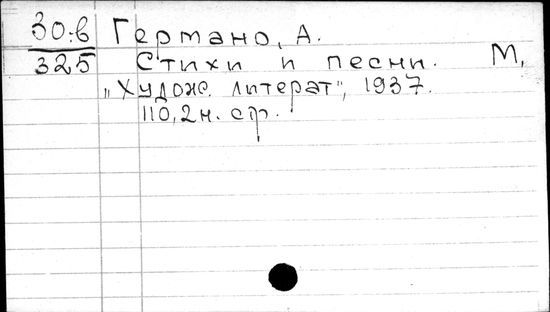 30:в Германо, А.
325 Стихи и песни. М,
„Худож. литерат", 1937.
110,2н. ср.